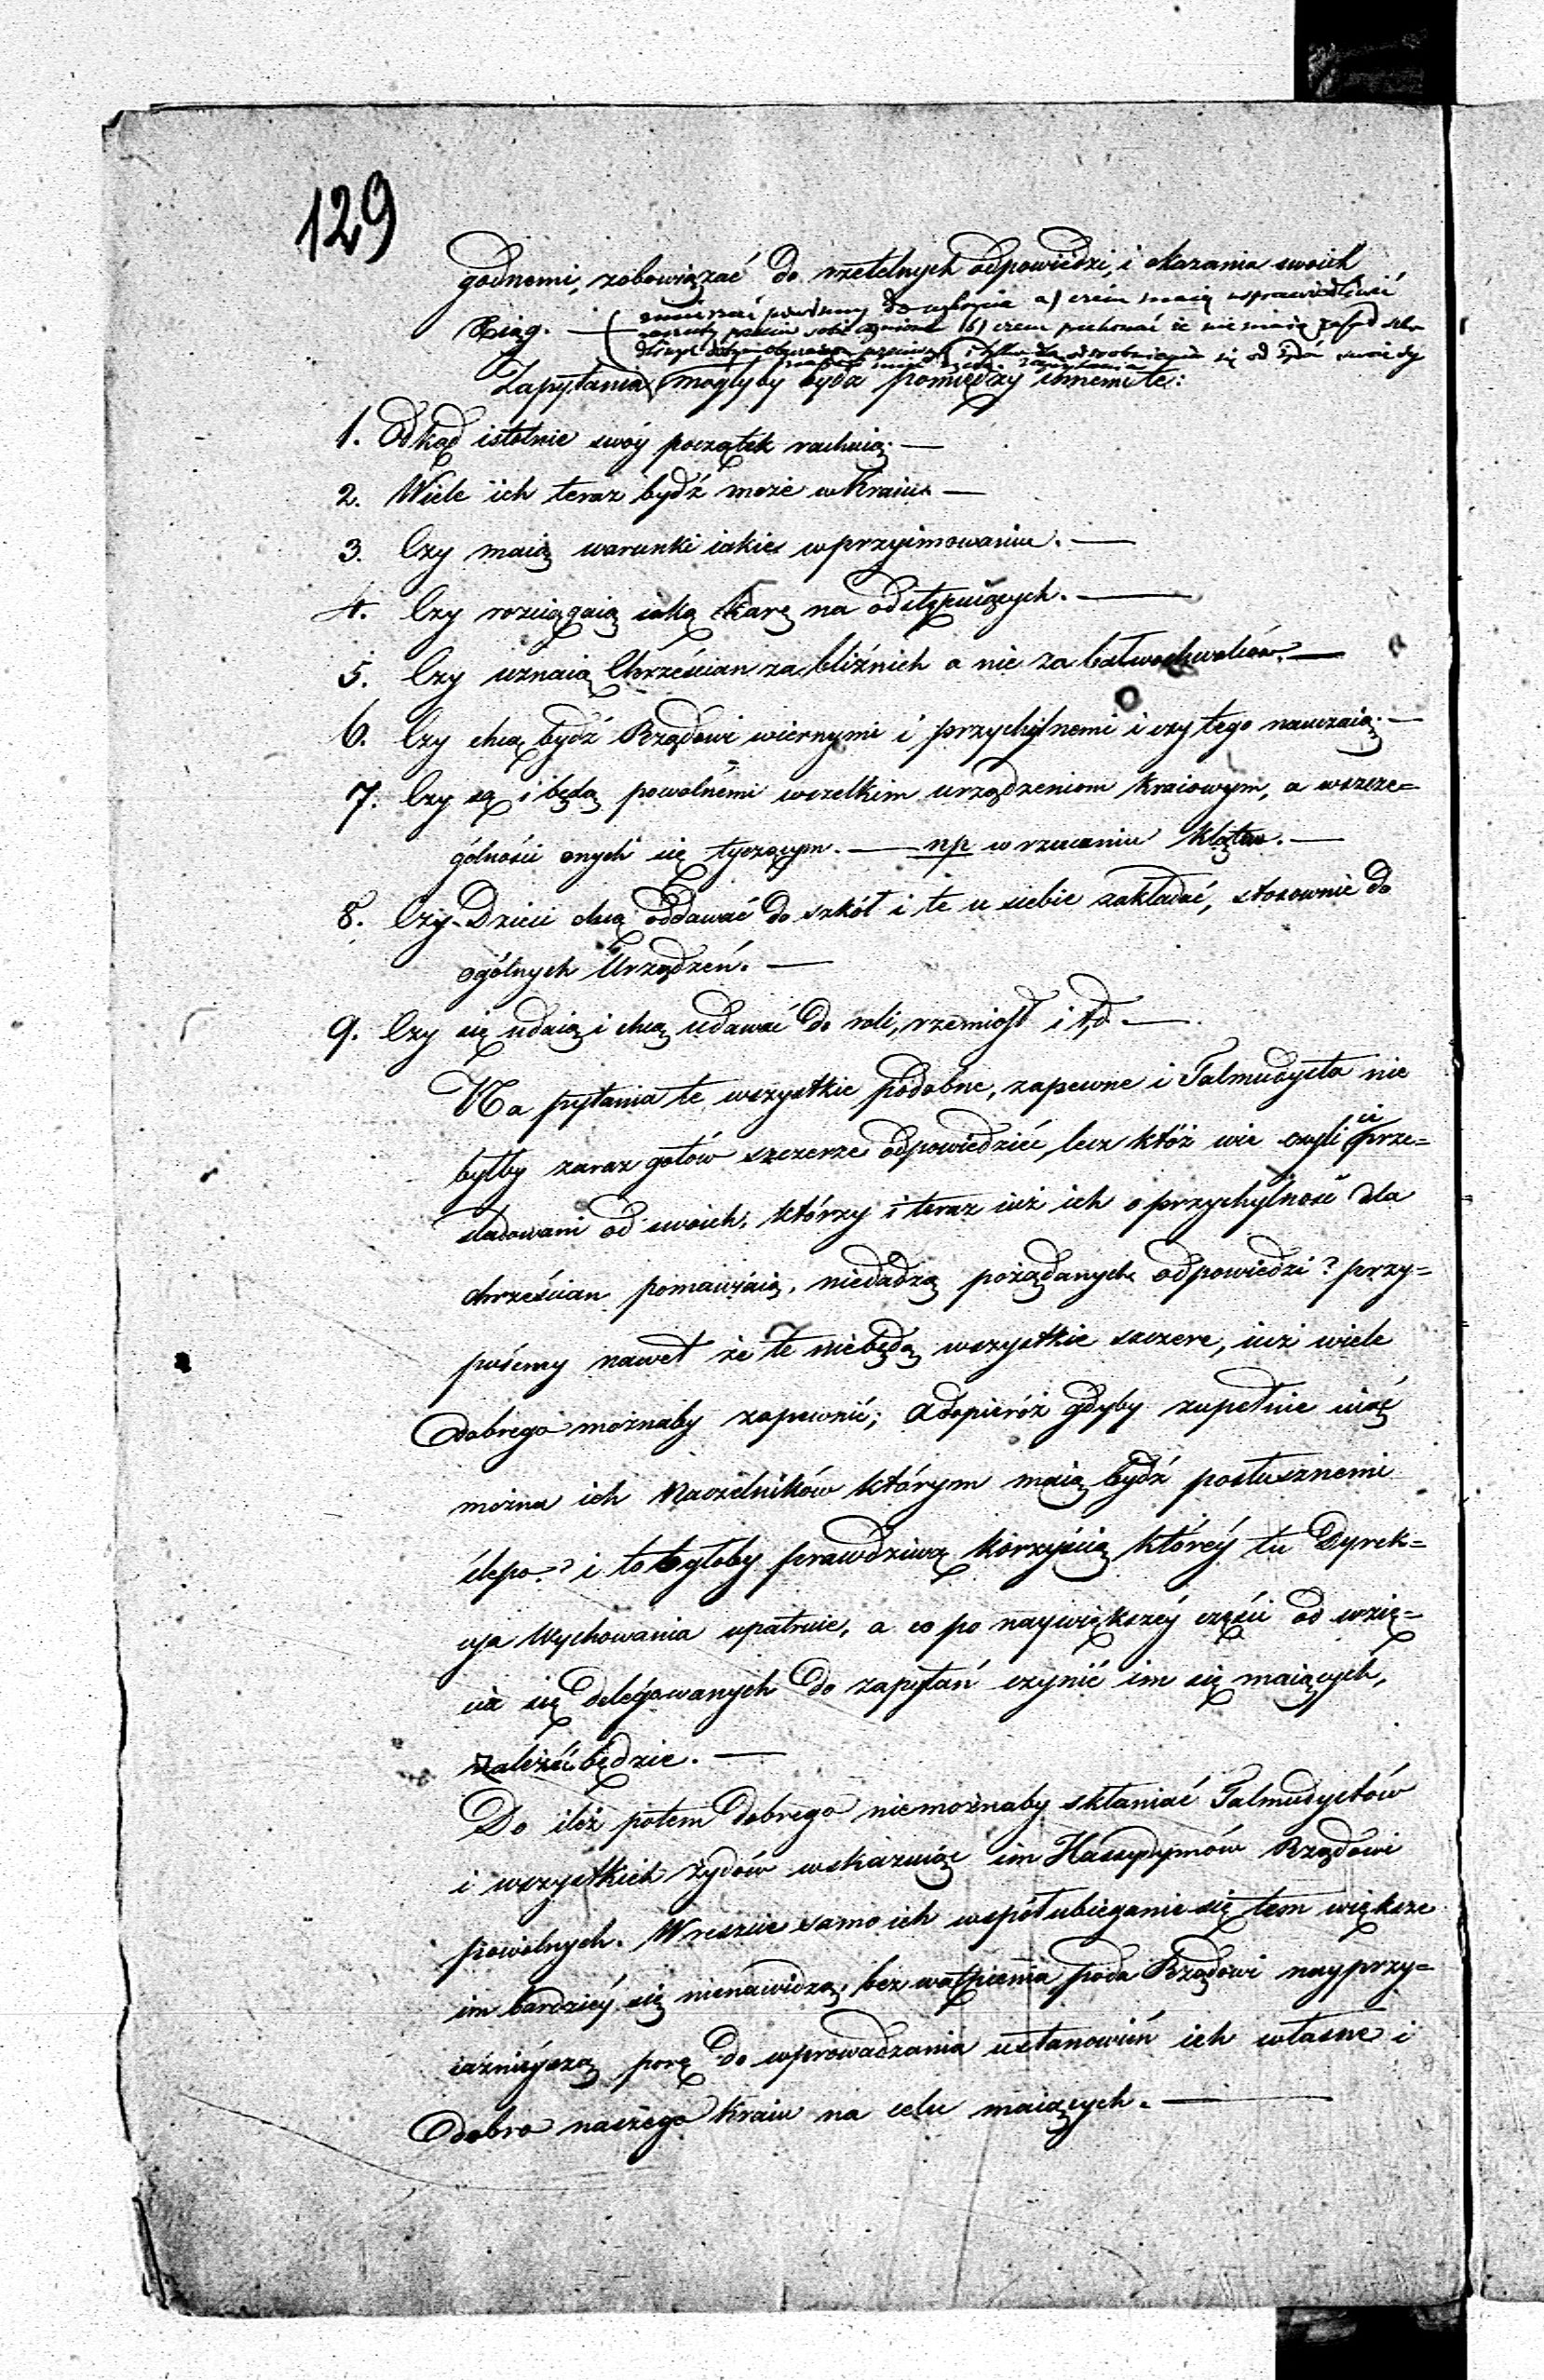 129
godnemi, zobowiązać do rzetelnych odpowiedzi, i okazania swoich
Xiąg. —
a) czém maią usprawiedliwić
zarzuty przeciw sobie czynione b) czem przekonać że nie maią zasad
się od Żydów
Zapytania mogłyby bydź pomiędzy innemi te:
1. Odkąd istotnie swóy początek rachuią. —
2. Wiele ich teraz bydź może w Kraiu. —
3. Czy maią warunki iakie w przyimowaniu. —
4. Czy rozciągaią iaką karę na odstępuiących. —
5. Czy uznaią Chrześcian za bliźnich a nie za bałwochwalców. —
6. Czy chcą bydź Rządowi wiernymi i przychylnemi i czy tego nauczaią. —
7. Czy są i będą powolnemi wszelkim urządzeniom kraiowym, a wszcze=
gólności onych się tyczącym. — np w rzucaniu Klątw. —
8. Czy Dzieci chcą oddawać do szkół i te u siebie zakładać, stosownie do
ogólnych Urządzeń. —
9. Czy się udaią i chcą udawać do roli, rzemiosł i t,d —
Na pytania te wszystkie podobne, zapewne i Talmudysta nie
byłby zaraz gotów szczerze odpowiedzieć, lecz któż wie czyli ci prze=
sladowani od swoich, którzy i teraz iuż ich o przychylność dla
chrześcian pomawiaią, niedadzą pożądanych odpowiedzi? przy=
puśćmy nawet że te niebędą wszystkie szczere, iuż wiele
dobrego możnaby zapewnić; a dopieróż gdyby zupełnie uiąć
można ich Naczelników którym maią bydź posłusznemi
ślepo? i to byłoby prawdziwą korzyścią któréy tu Dyrek=
cya Wychowania upatruie, a co po naywiększéy części od wzię=
cia się delegowanych do zapytań czynić im się maiących,
zależéć będzie. —
Do iléż potem dobrego niemożnaby skłaniać Talmudystów
i wszystkich żydów wskazuiąc im Hassydymów Rządowi
powolnych. Wreszcie samo ich współubieganie się tem większe
im bardziéy się nienawidzą, bez wątpienia poda Rządowi nayprzy=
iaźniéyszą porę do wprowadzania ustanowień ich własne i
dobro naszego Kraiu na celu maiących. —